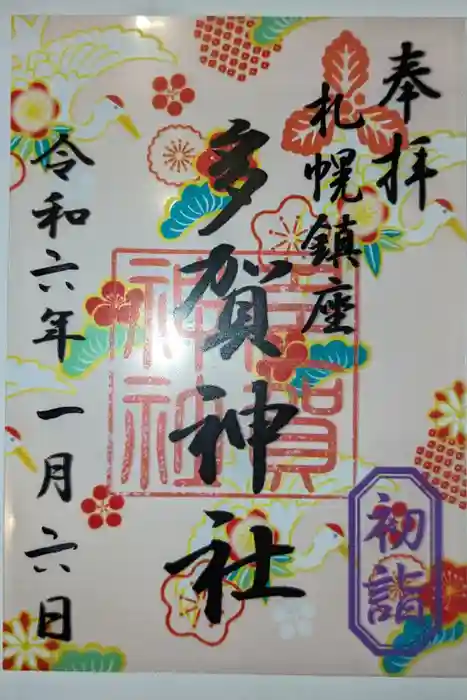 奉拝
札幌鎮座
多賀神社
多賀神社
令和六年一月六日
初詣